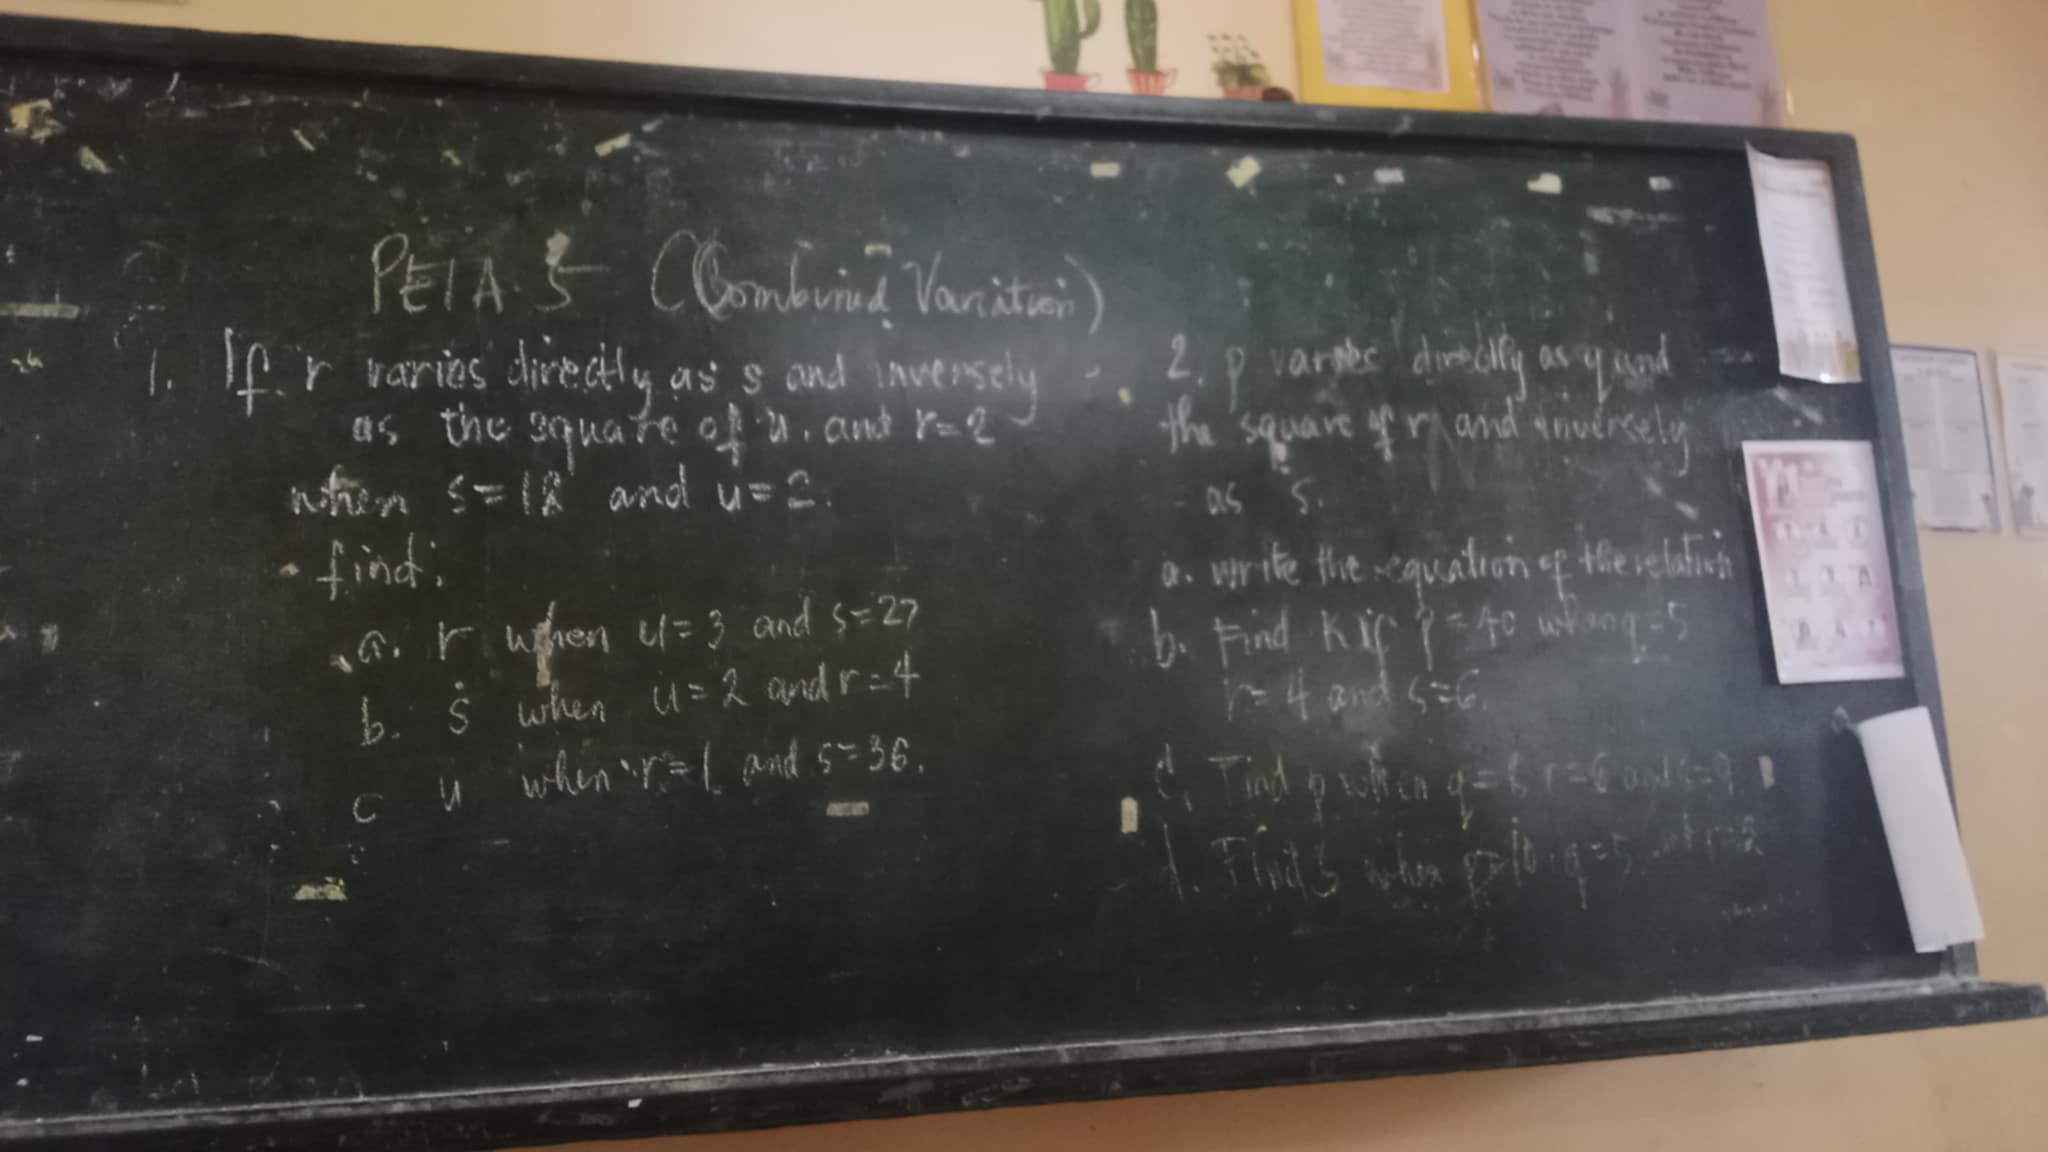 PETA 5 (Combined Variation)
1. If r varies directly as s and inversely
as the square of u. and r=2
when s=18 and u=2.
find:
a. r when u=3 and s=27
b. s when u=2 and r=4
c u when r=1 and s=36.
2. p varies directly as q and
the square of r and inversely
as s.
a. write the equation of the relation
b. Find K if p=40 when q=5
r=4 and s=6.
c. Find p when q= r=6 and s=9
d. Find s when p=10 q=5 and r=2